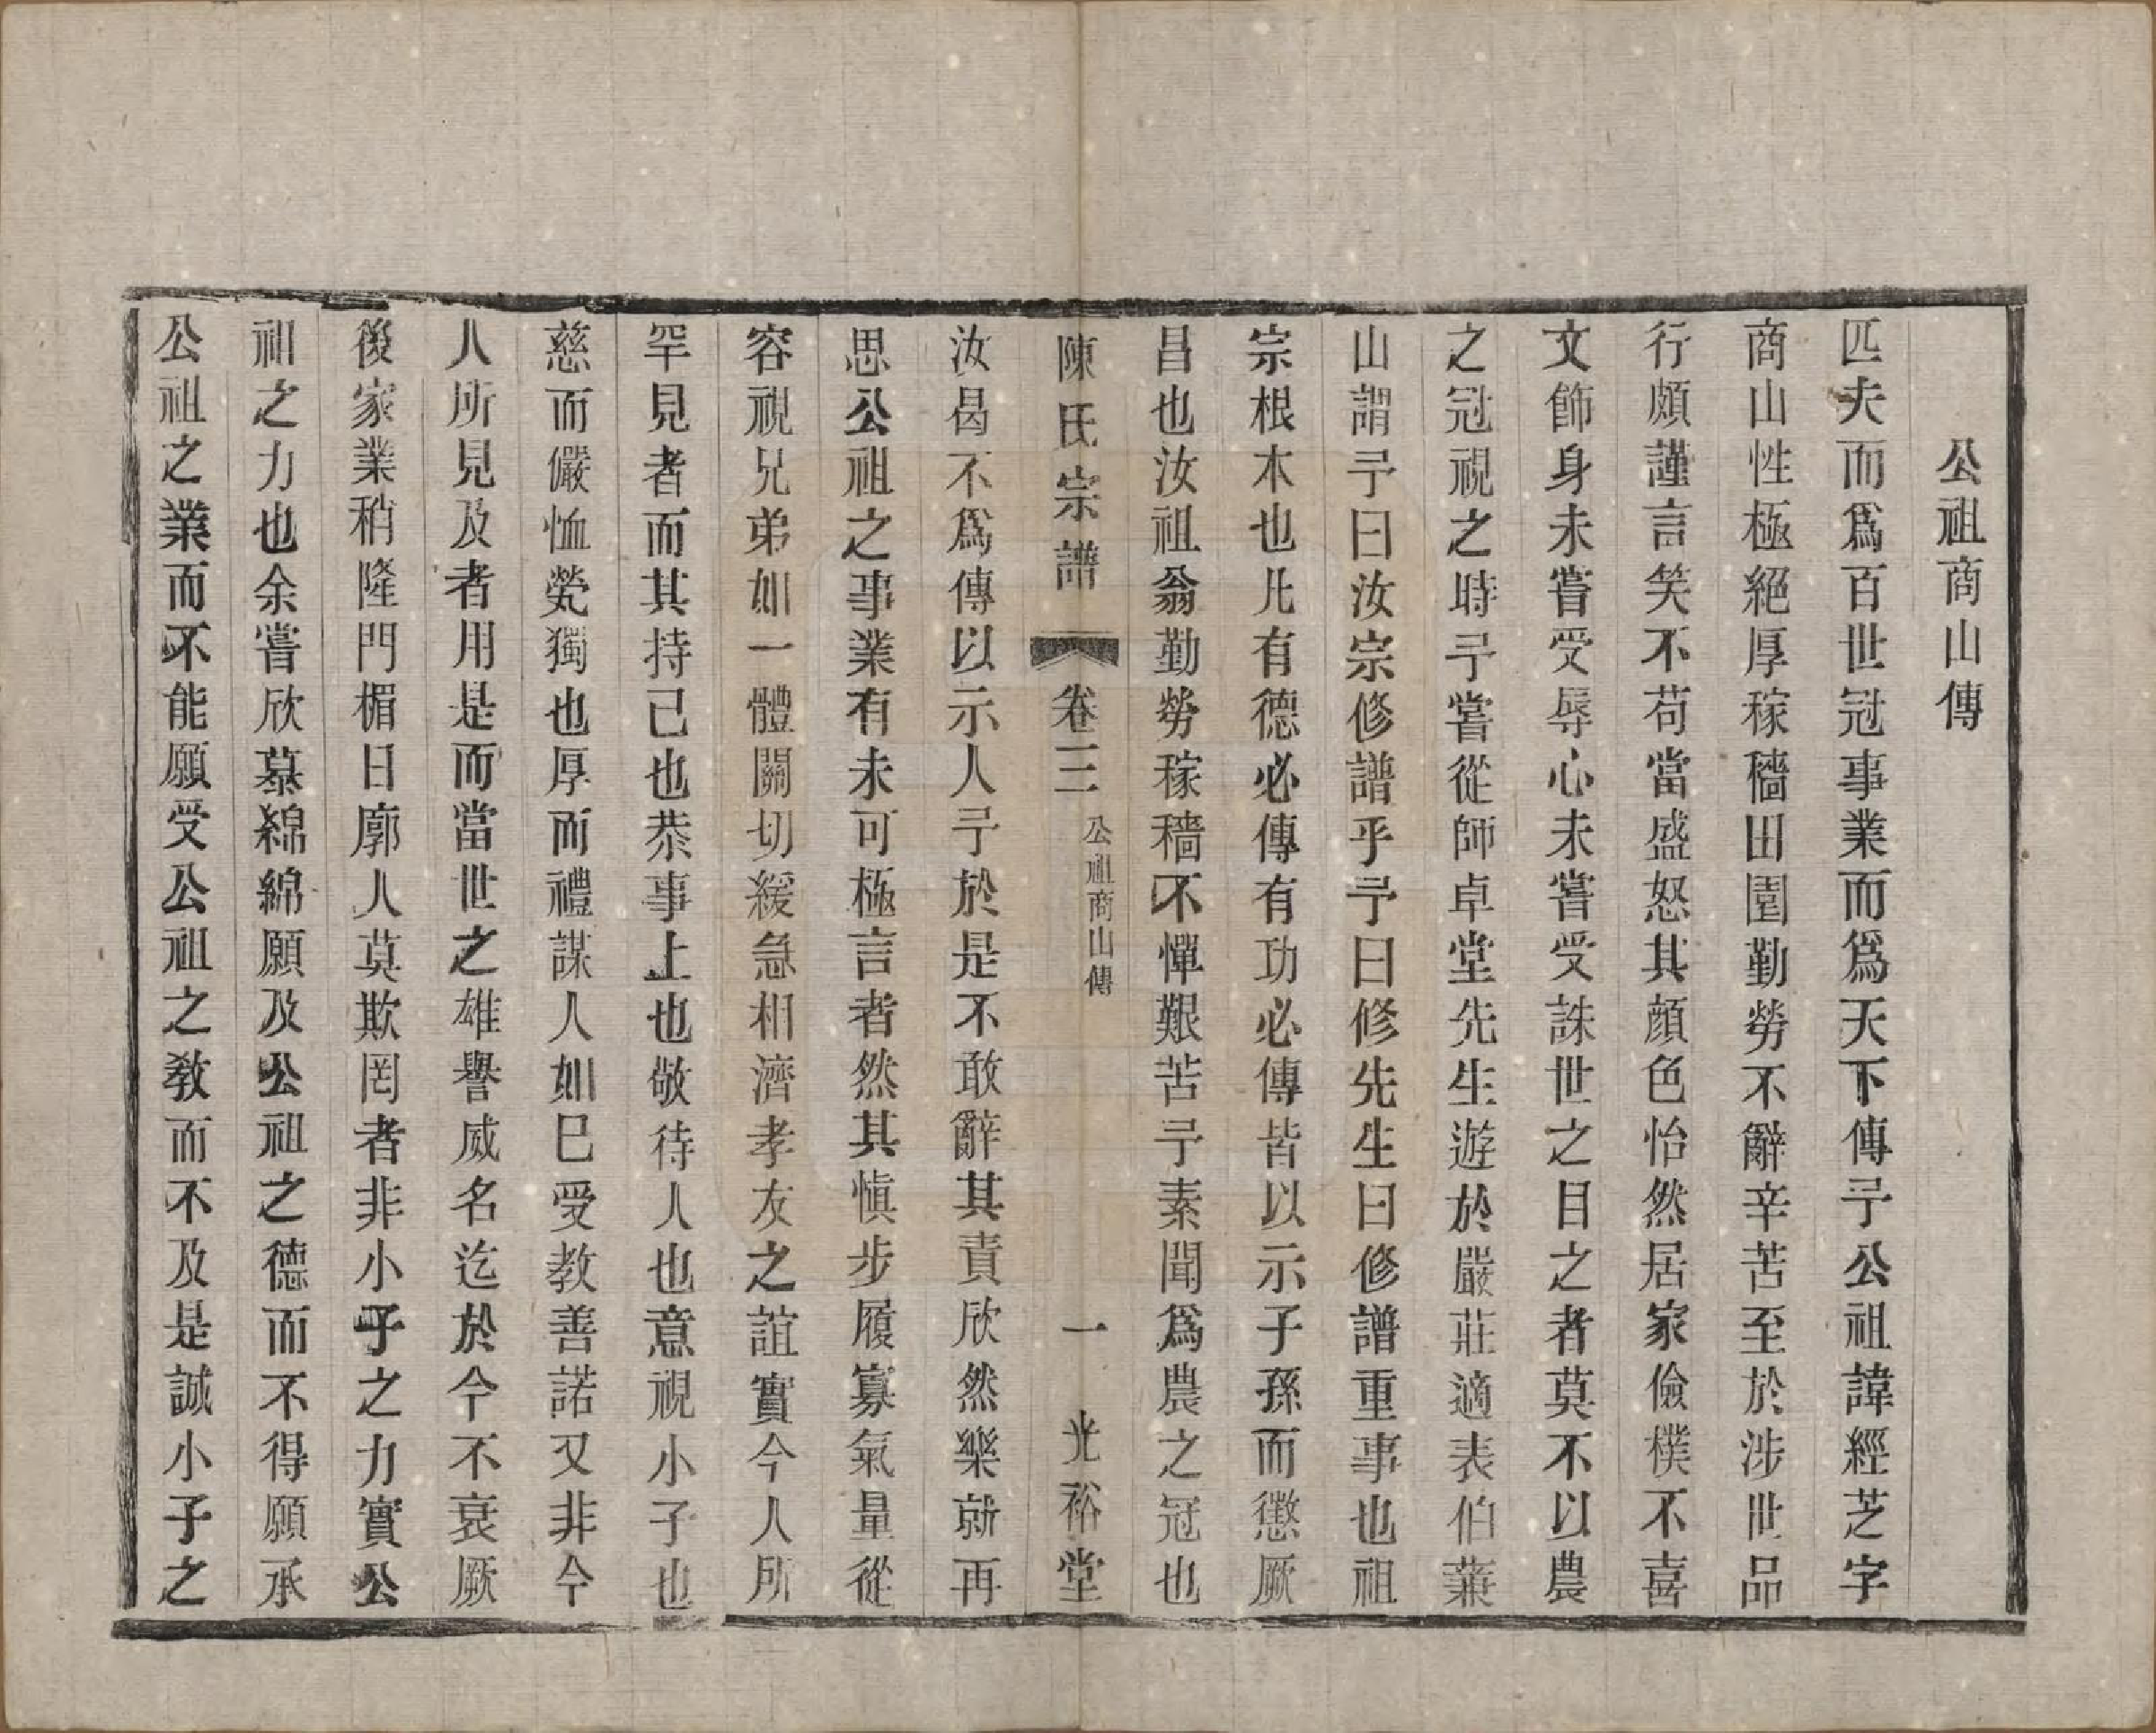 公祖商山傳
匹夫而爲百世冠事業而爲天下傳予公祖諱經芝字
商山性極絕厚稼穡田園勤勞不辭辛苦至於涉世品
行頗謹言笑不苟當盛怒其顔色怡然居家儉樸不喜
文飾身未嘗受辱心未嘗受誅世之目之者莫不以農
之冠視之時予嘗從師卓堂先生遊於嚴莊適表伯葉
山謂予曰汝宗修譜乎予曰修先生曰修譜重事也祖
宗根本也凡有德必傳有功必傳皆以示子孫而懲厥
昌也汝祖翁勤勞稼穡不憚艱苦予素聞爲農之冠也
陳氏宗譜 卷三 公祖商山傳 一 光裕堂
汝曷不爲傳以示人予於是不敢辭其責欣然樂就再
思公祖之事業有未可極言者然其愼步履寡氣量從
容視兄弟如一體關切緩急相濟孝友之誼實今人所
罕見者而其持己也恭事上也敬待人也意視小子也
慈而儼恤煢獨也厚而禮謀人如巳受教善諾又非今
人所見及者用是而當世之雄譽威名迄於今不衰厥
後家業稍隆門楣日廓人莫欺罔者非小子之力實公
祖之力也余嘗欣慕綿綿願及公祖之德而不得願承
公祖之業而不能願受公祖之敎而不及是誠小子之